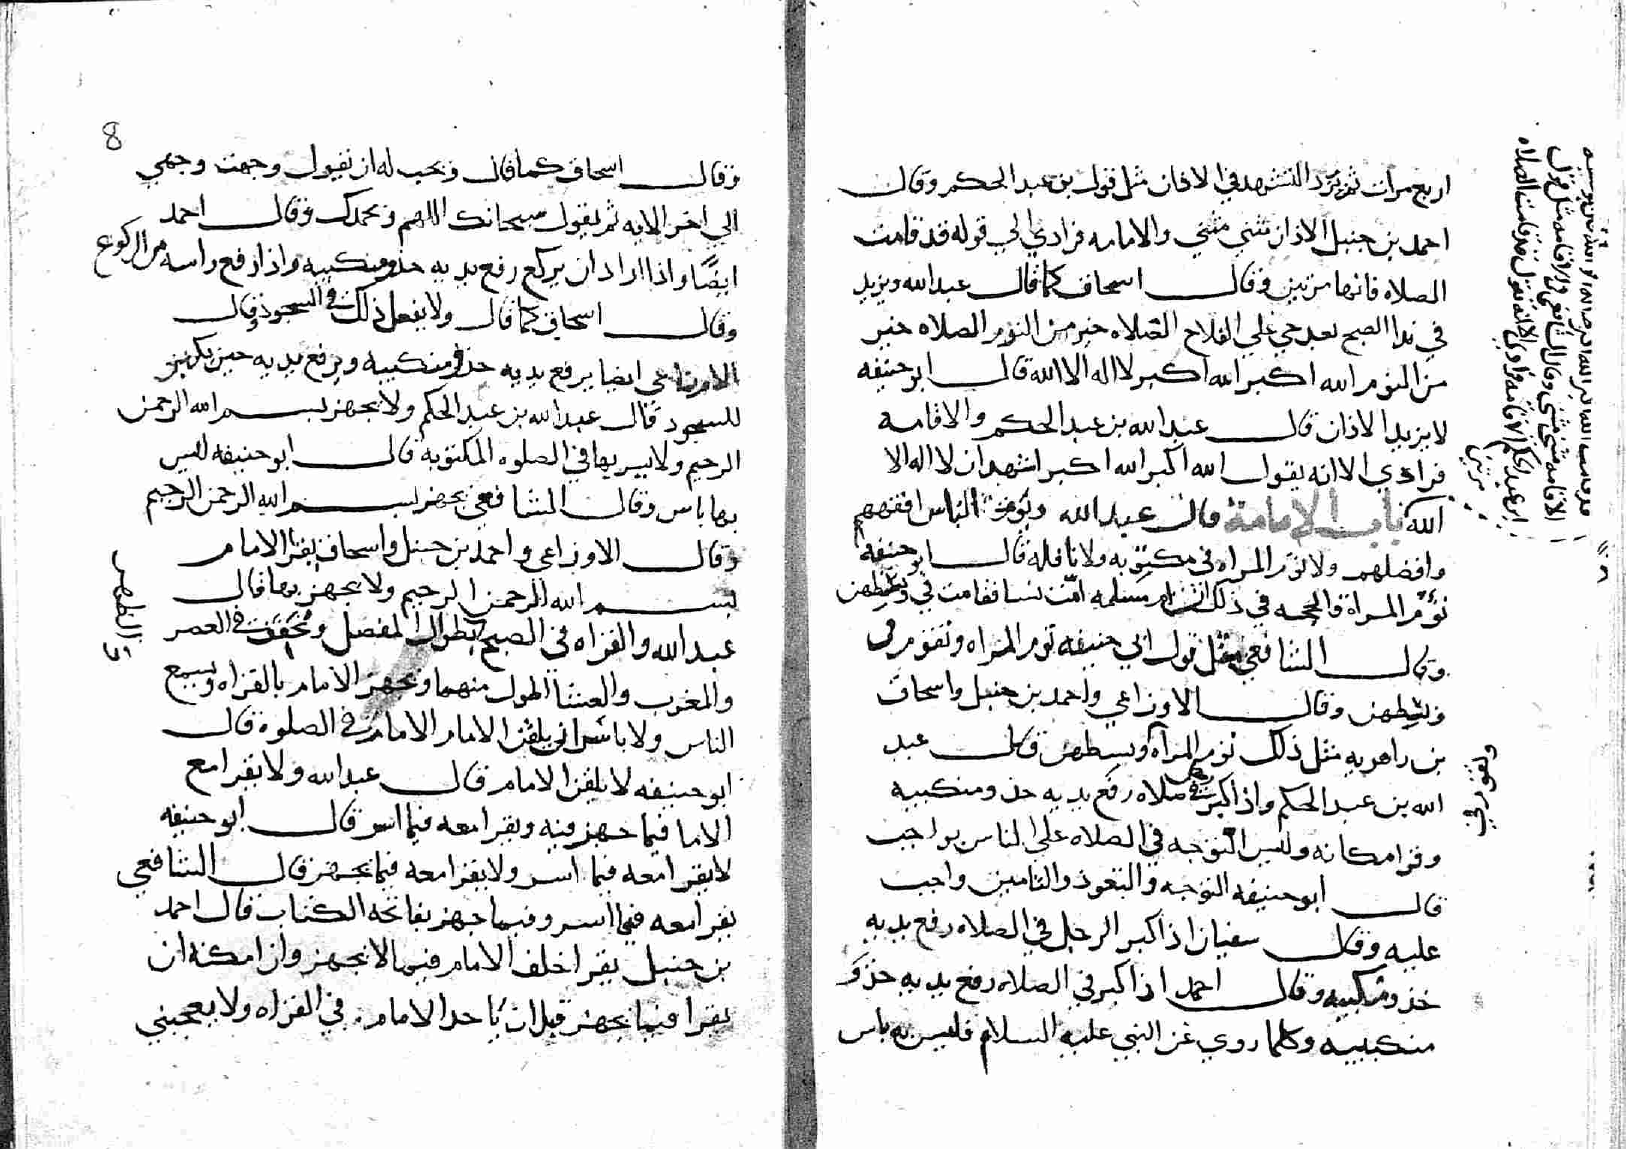 اربع مرات ثم يزيد التشهد في الاذان مثل قول بن عبد الحكم وقال
احمد بن حنبل الاذان مثني مثني والاقامه فرادي الي قوله قد قامت
الصلاه فانها مرتين وقال اسحاق كما قال عبد الله ويزيد
في ندا الصبح بعد حي علي الفلاح الصلاه خير من النوم الصلاه خير
من النوم الله اكبر الله اكبر لا اله الا الله قال ابو حنيفه
لا يزيد الاذان قال عبد الله بن عبد الحكم والاقامه
فرادي الا انه يقول الله اكبر الله اكبر اشهد ان لا اله الا
الله باب الإمامة قال عبد الله ويؤم الناس افقههم
وافضلهم ولا تؤم المراه في مكتوبه ولا نافله قال ابو حنيفه
تؤم المراة والحجه في ذلك ان ام سلمه امت نسا فقامت في وسطهن
وقال الشافعي مثل قول ابي حنيفه تؤم المراه وتقوم في
وسطهن وقال الاوزاعي واحمد بن حنبل واسحاق
بن راهويه مثل ذلك تؤم المراه وسطهن قال عبد
الله بن عبد الحكم واذا كبر في صلاه رفع يديه حذو منكبيه
وقرا مكانه وليس التوجه في الصلاه علي الناس بواجب
قال ابو حنيفه التوجه والتعوذ والتامين واجب
عليه وقال سفيان اذا كبر الرجل في الصلاه رفع يديه
حذو منكبيه وقال احمد اذا كبر في الصلاه رفع يديه حذو
منكبيه وكلما روي عن النبي عليه السلام فليس به باس
الاقامه مثني مثني وقال الشافعي والاقامه مثل قول
ابن عبد الحكم الاقامه فرادي الا انه يقول قد قامت الصلاه
مرتين
وتقوم في
8
وقال اسحاق كما قال ويجب له ان يقول وجهت وجهي
الي اخر الايه ثم يقول سبحانك اللهم وبحمدك وقال احمد
ايضًا واذا اراد ان يركع رفع يديه حذو منكبيه واذا رفع راسه من الركوع
وقال اسحاق كما قال ولا يفعل ذلك في السجود وقال
الاوزاعي ايضا يرفع يديه حذو منكبيه ويرفع يديه حين يكبر
للسجود قال عبد الله بن عبد الحكم ولا يجهر بسم الله الرحمن
الرحيم ولا يسر بها في الصلوه المكتوبه قال ابو حنيفه ليس
بها باس وقال الشافعي يجهر بسم الله الرحمن الرحيم
وقال الاوزاعي واحمد بن حنبل واسحاق يقرا الامام
بسم الله الرحمن الرحيم ولا يجهر بها قال
عبد الله والقراه في الصبح بطوال المفصل ويخفف في العصر
والمغرب والعشا اطول منهما ويجهر الامام بالقراه ويسمع
الناس ولا باس ان يلقن الامام الامام في الصلوه قال
ابو حنيفه لا يلقن الامام قال عبد الله ولا يقرا مع
الاما فيما جهر فيه ويقرا معه فيما اسر قال ابو حنيفه
لا يقرا معه فيما اسر ولا يقرا معه فيما يجهر قال الشافعي
يقرا معه فيما اسر وفيما جهر بفاتحه الكتاب قال احمد
بن حنبل يقرا خلف الامام فيما لا يجهر وان امكنه ان
يقرا فيما يجهر قبل ان ياخذ الامام في القراه ولا يعجبني
والظهر